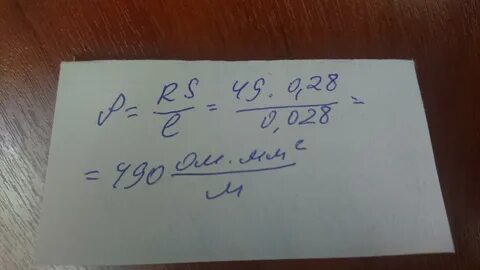 ρ = RS/l = 49 · 0,28/0,028 =
= 490 Ом·мм²/м